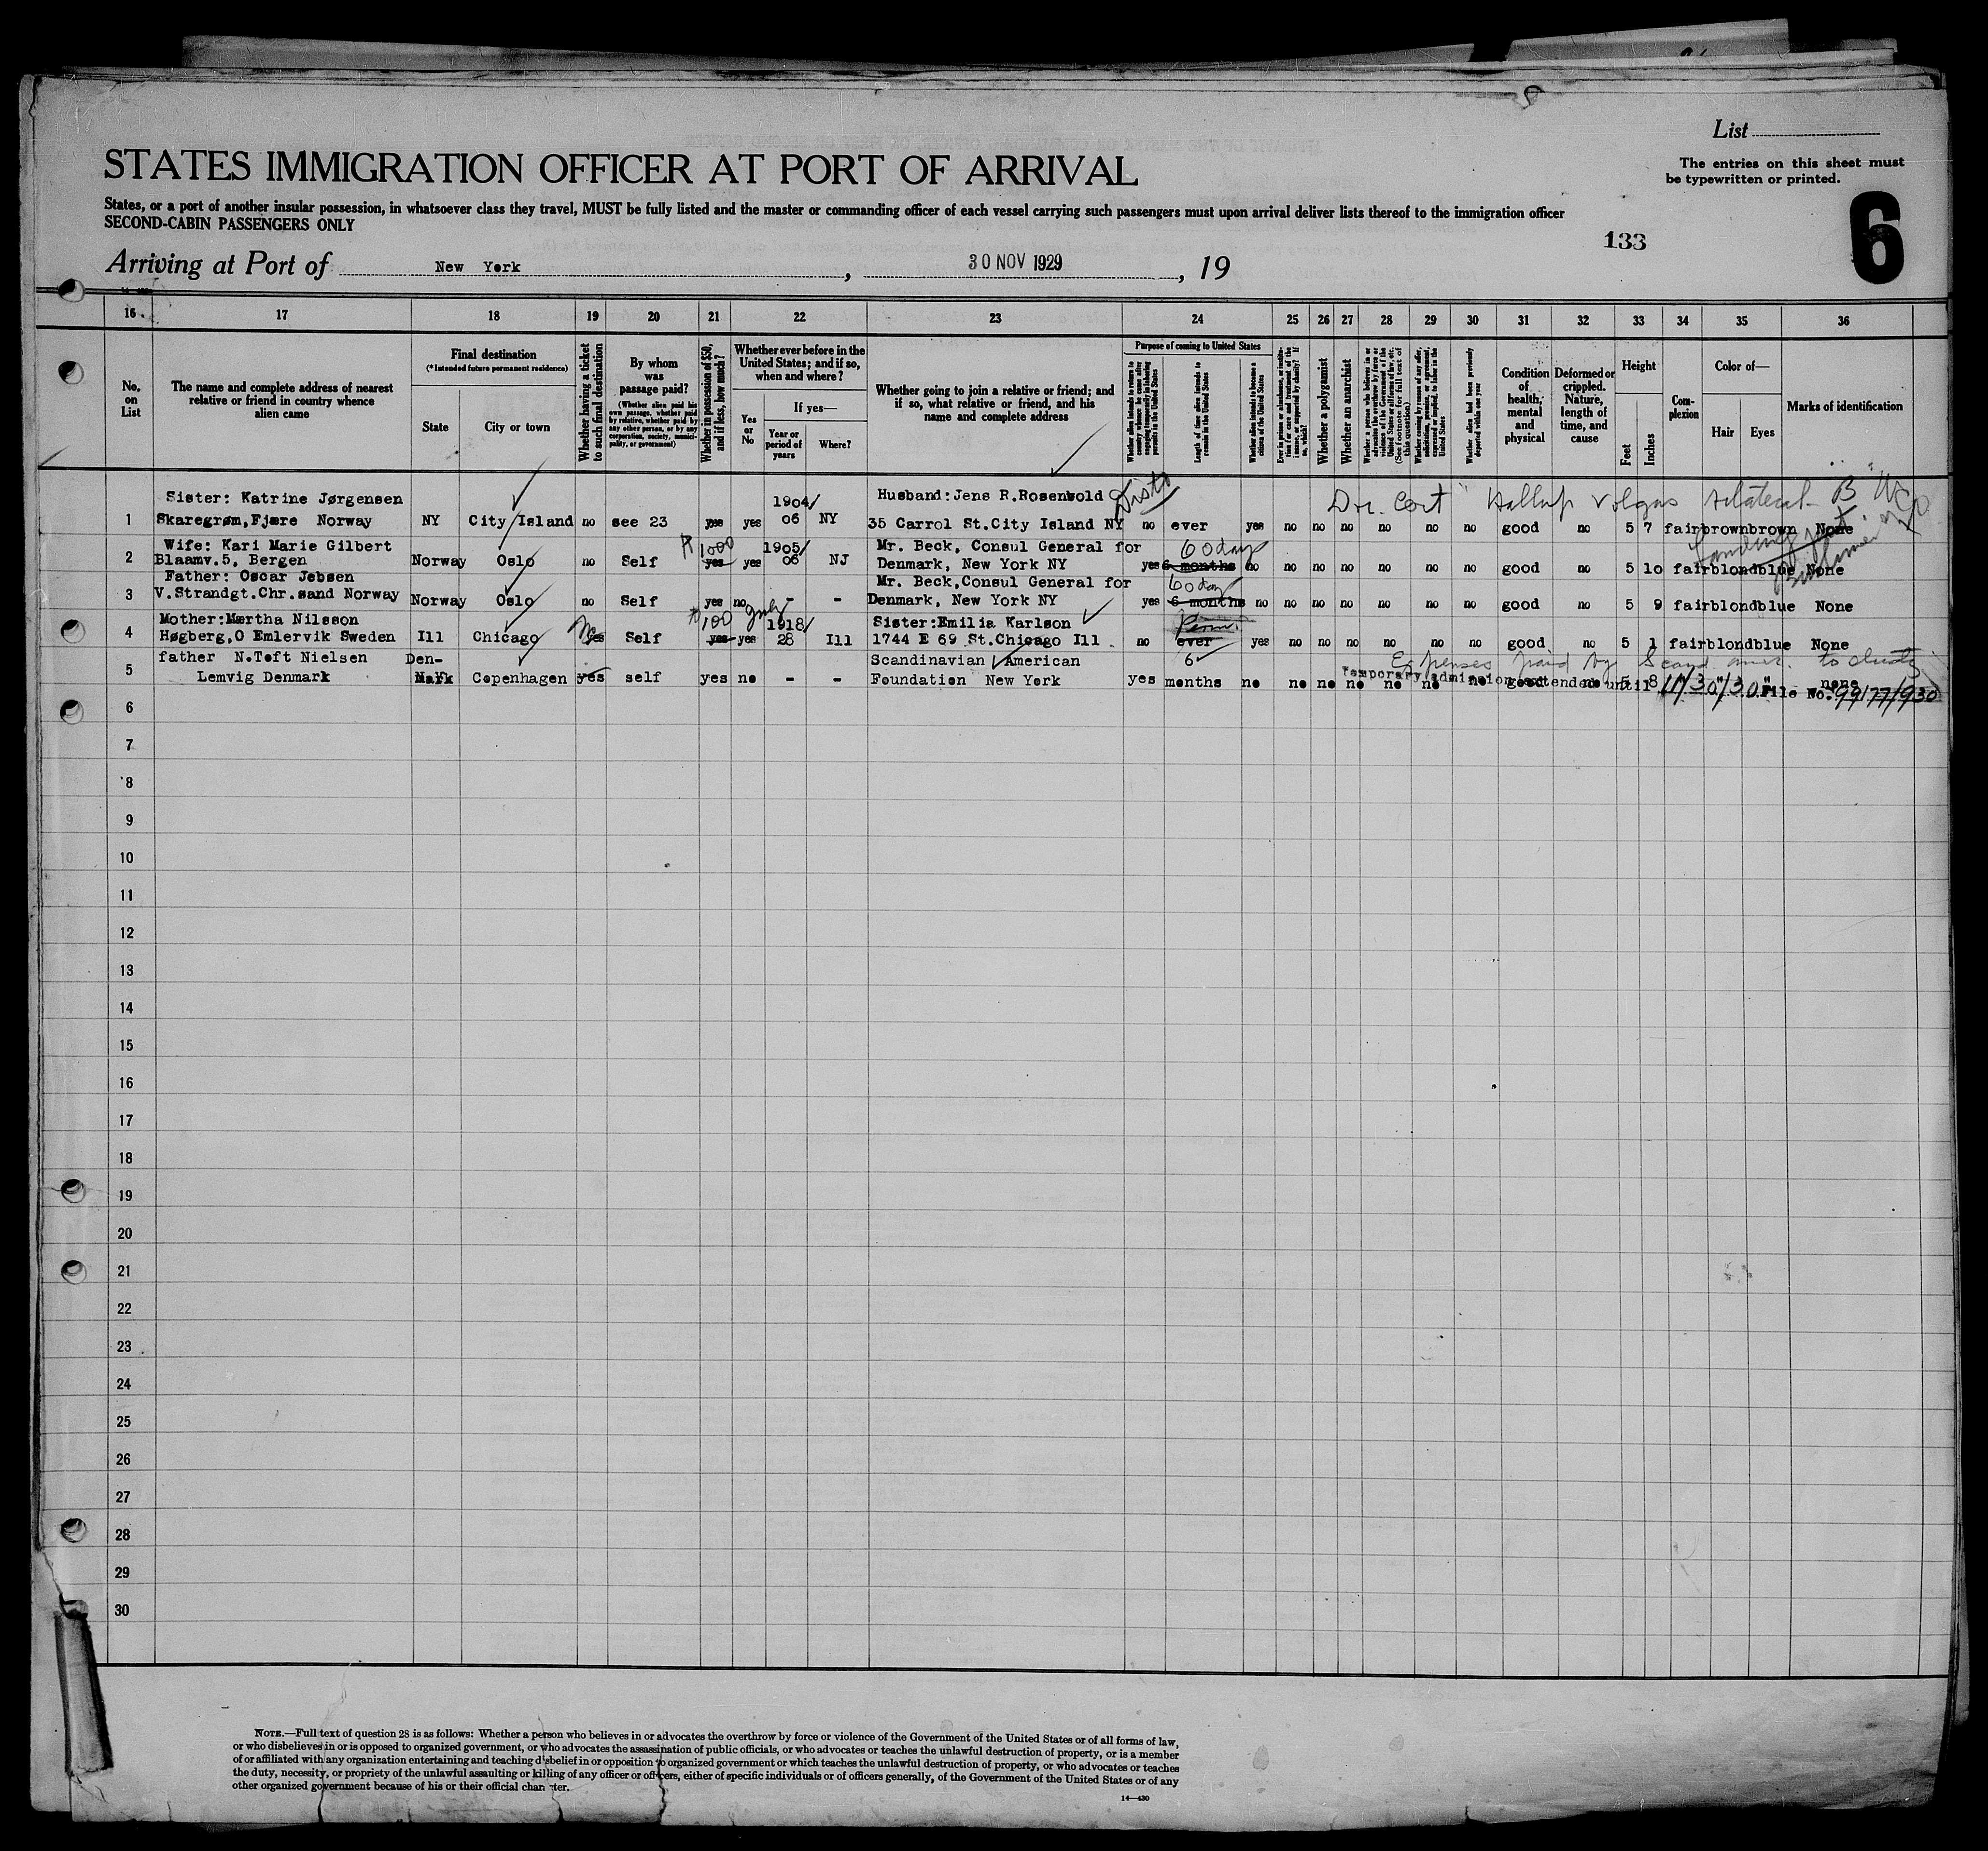 List
The entries on this sheet must
be typewritten or printed.
STATES IMMIGRATION OFFICER AT PORT OF ARRIVAL
6
States, or a port of another insular possession, in whatsoever class they travel, MUST be fully listed and the master or commanding officer of each vessel carrying such passengers must upon arrival deliver lists thereof to the immigration officer
SECOND-CABIN PASSENGERS ONLY
133
Arriving at Port of New York, 30 NOV 1929, 19
16 17 18 19 20 21 22 23 24 25 26 27 28 29 30 31 32 33 34 35 36
No. on List
The name and complete address of nearest
relative or friend in country whence
alien came
Final destination
(*Intended future permanent residence)
State
City or town
Whether having a ticket
to such final destination
By whom
was
passage paid?
(Whether alien paid his
own passage, whether paid
by relative, whether paid by
any other person, or by any
corporation, society, munici-
pality, or government)
Whether in possession of $50,
and if less, how much?
Whether ever before in the
United States; and if so,
when and where?
Yes or No
If yes—
Year or
period of
years
Where?
Whether going to join a relative or friend; and
if so, what relative or friend, and his
name and complete address
Purpose of coming to United States
Whether alien intends to return to
country whence he came after
engaging temporarily in laboring
pursuits in the United States
Length of time alien intends to
remain in the United States
Whether alien intends to become a
citizen of the United States
Whether a polygamist
Whether an anarchist
Whether alien had been previously
deported within one year
Condition
of
health,
mental
and
physical
Deformed or
crippled.
Nature,
length of
time, and
cause
Height
Feet
Inches
Com-
plexion
Color of—
Hair
Eyes
Marks of identification
Sister: Katrine Jørgensen 1904/ Husband: Jens R.Rosenvold
1 Skaregrøm,Fjære Norway NY City Island no see 23 yes yes 06 NY 35 Carrol St.City Island NY no ever yes no no no no no no good no 5 7 fair brown brown None
Wife: Kari Marie Gilbert 1000 1905/ Mr. Beck, Consul General for 60 days
2 Blaamv.5, Bergen Norway Oslo no Self yes yes 06 NJ Denmark, New York NY yes 6 months no no no no no no no good no 5 10 fair blond blue None
Father: Oscar Jebsen Mr. Beck,Consul General for 60 days
3 V.Strandgt.Chr.sand Norway Norway Oslo no Self yes no - - Denmark, New York NY yes 6 months no no no no no no no good no 5 9 fair blond blue None
Mother:Mærtha Nilsson 100 1918/ Sister:Emilia Karlson Perm.
4 Høgberg,O Emlervik Sweden Ill Chicago No yes Self yes yes 28 Ill 1744 E 69 St.Chicago Ill. no ever yes no no no no no no good no 5 1 fair blond blue None
father N.Toft Nielsen Den- Scandinavian American 6 Expenses paid by Scand
5 Lemvig Denmark Mark Copenhagen yes self yes no - - Foundation New York yes months no no no no no no no good no 5 8 none
Temporary admission extended until 11/30/30. File No. 99177/930
6
7
8
9
10
11
12
13
14
15
16
17
18
19
20
21
22
23
24
25
26
27
28
29
30
NOTE.—Full text of question 28 is as follows: Whether a person who believes in or advocates the overthrow by force or violence of the Government of the United States or of all forms of law,
or who disbelieves in or is opposed to organized government, or who advocates the assassination of public officials, or who advocates or teaches the unlawful destruction of property, or is a member
of or affiliated with any organization entertaining and teaching disbelief in or opposition to organized government or which teaches the unlawful destruction of property, or who advocates or teaches
the duty, necessity, or propriety of the unlawful assaulting or killing of any officer or officers, either of specific individuals or of officers generally, of the Government of the United States or of any
other organized government because of his or their official character.
14—430